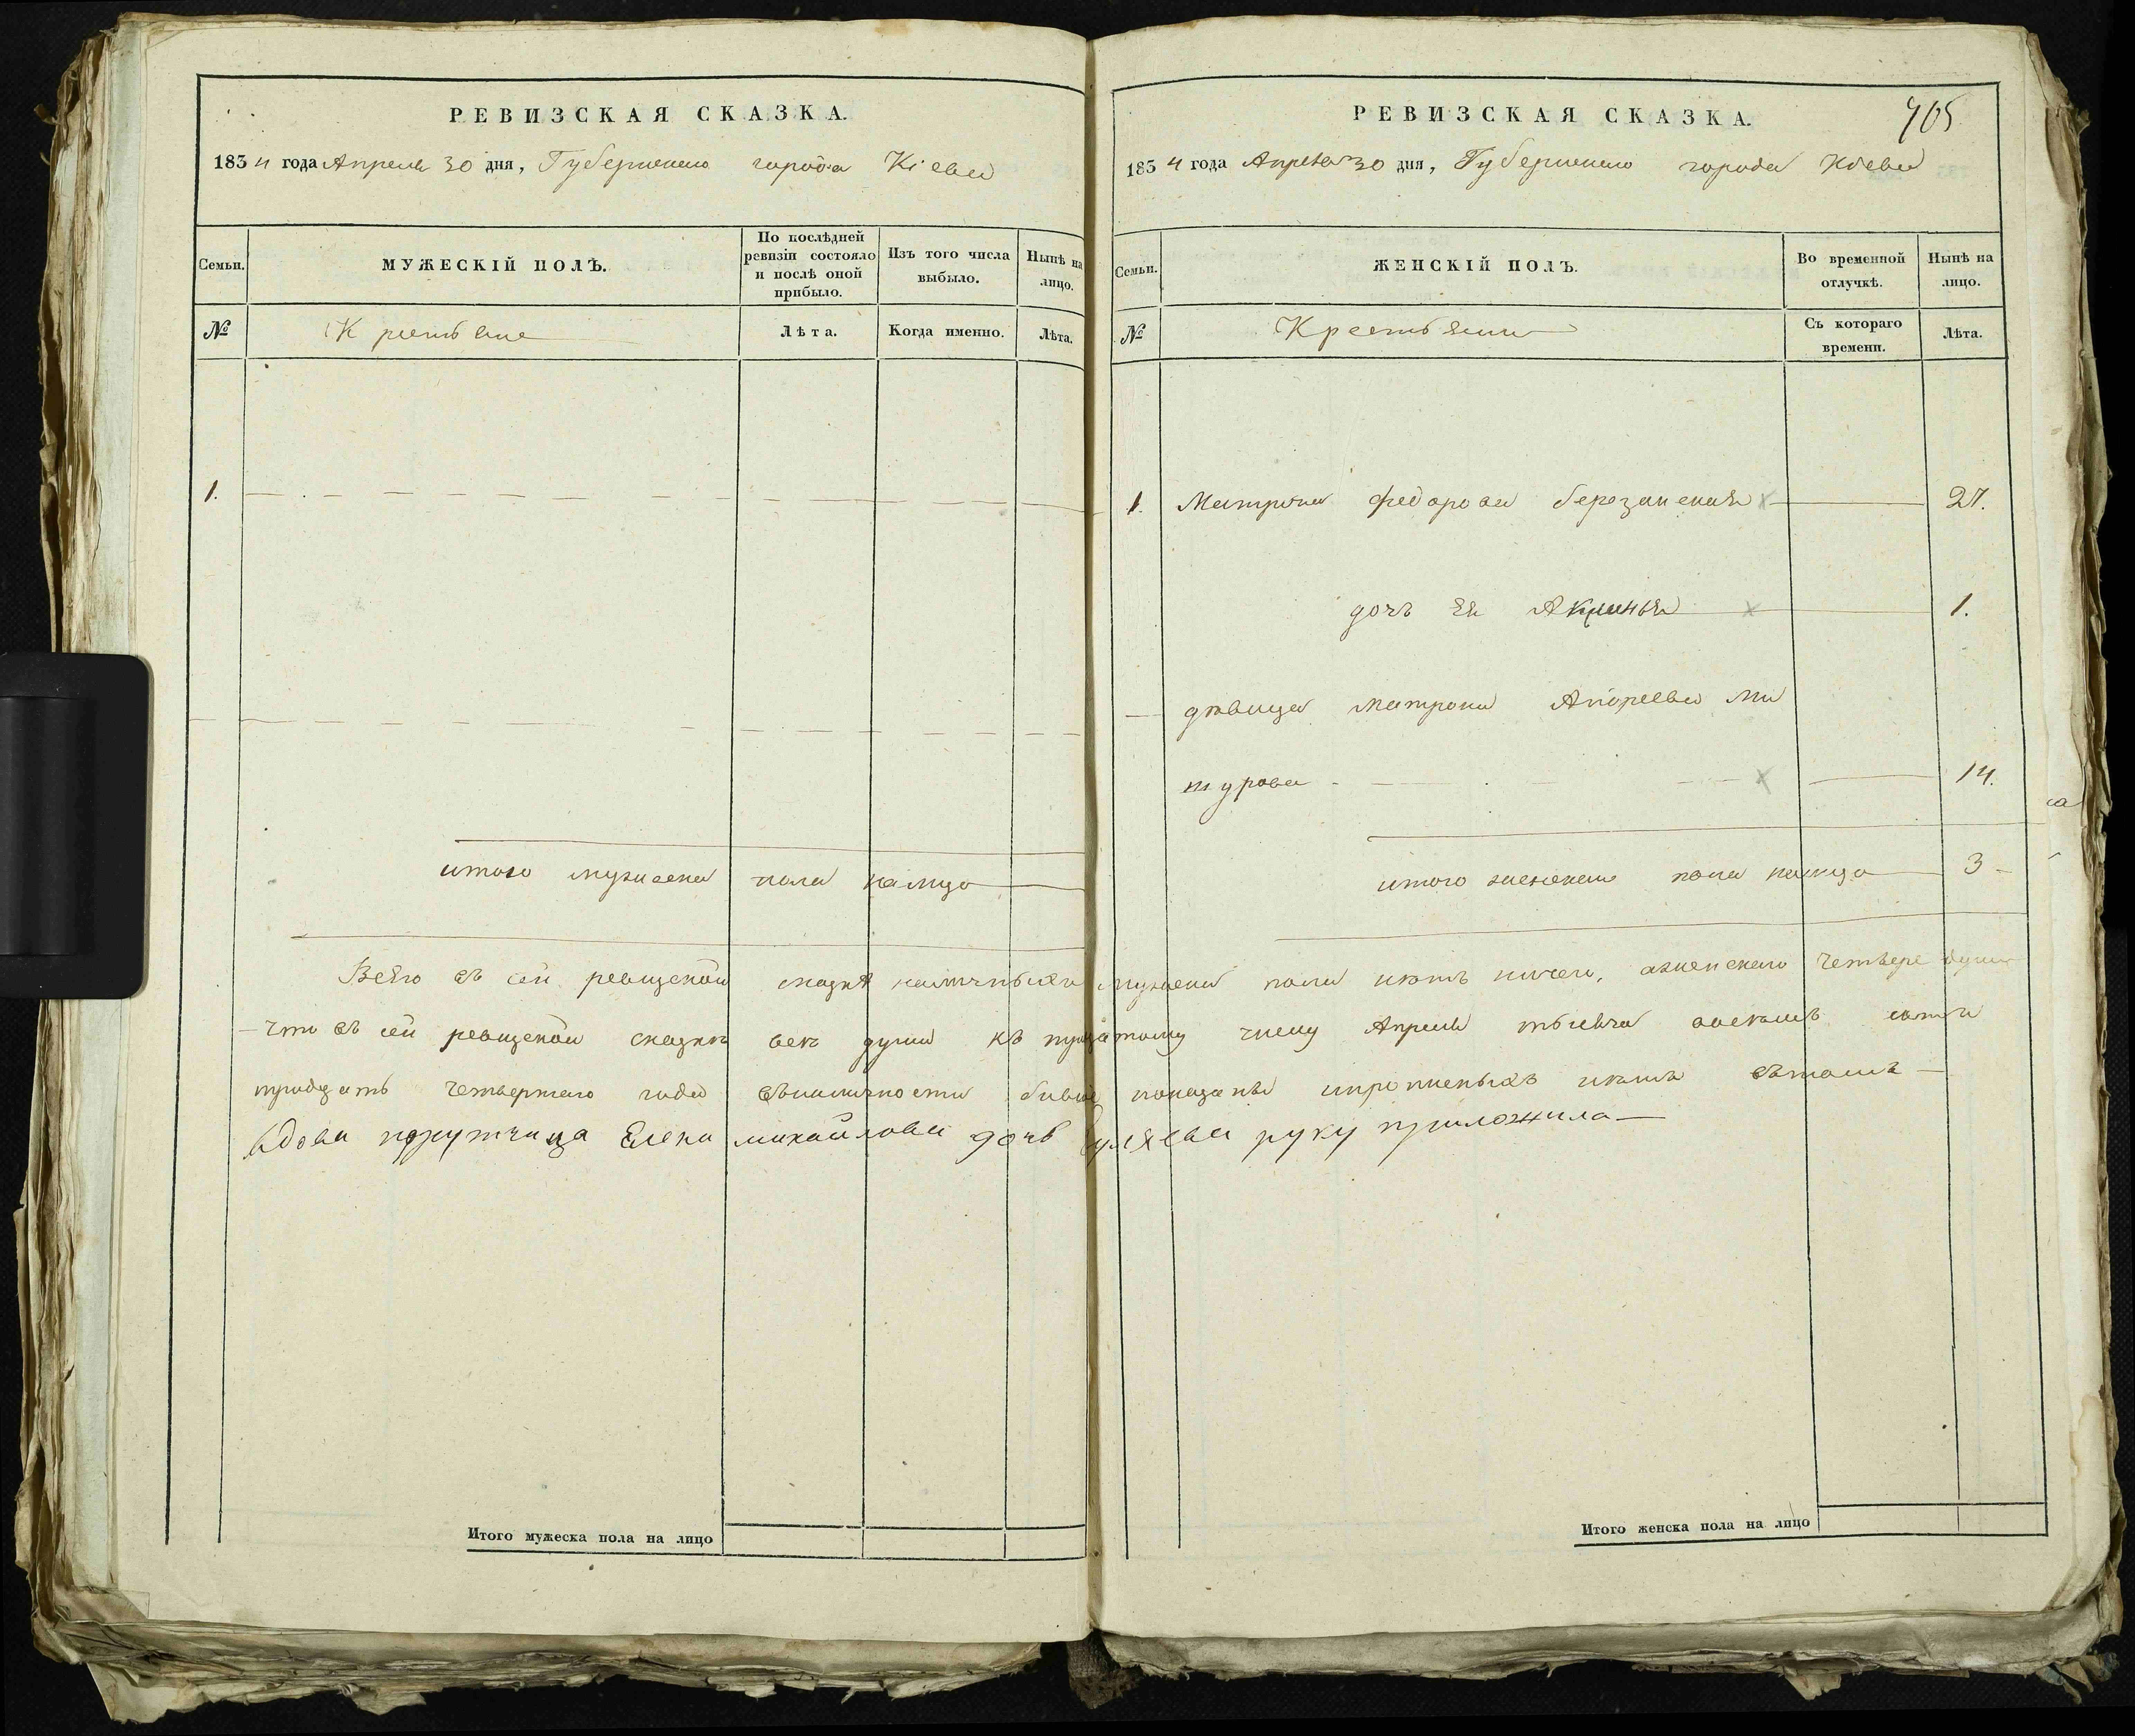 РЕВИЗСКАЯ СКАЗКА.
1834 года Апреля 30 дня, Губернского города Кіева
Семьи.
МУЖЕСКІЙ ПОЛЪ.
По послѣдней ревизіи состояло и послѣ оной прибыло.
Изъ того числа выбыло.
Нынѣ на лицо.
№
Крестьяне
Лѣта.
Когда именно.
Лѣта.
1.
итого мужеска пола налицо
Итого мужеска пола на лицо
405
РЕВИЗСКАЯ СКАЗКА.
1834 года Апреля 30 дня, Губернского города Кіева
Семьи.
ЖЕНСКІЙ ПОЛЪ.
Во временной отлучкѣ.
Нынѣ на лицо.
№
Крестьяни
Съ котораго времени.
Лѣта.
1. Матрона федорова березанская 27.
дочь Ея Акулинья 1.
дѣвица Матрона Андреева Ми
турова 14.
итого женскаго пола налицо 3
Всего въ сей ревизской сказкѣ наличныхъ мужеска пола нѣтъ ничего, аженскаго четвере души
что въ сей ревизской сказкѣ всѣ души къ тридцатому числу Апреля тысяча восемь сотъ
тридцать четвертаго года вналичности бывшіе показаны ипрописныхъ нѣтъ вътомъ
вдова порутчица Елена михайлова дочь руку приложила
Итого женска пола на лицо